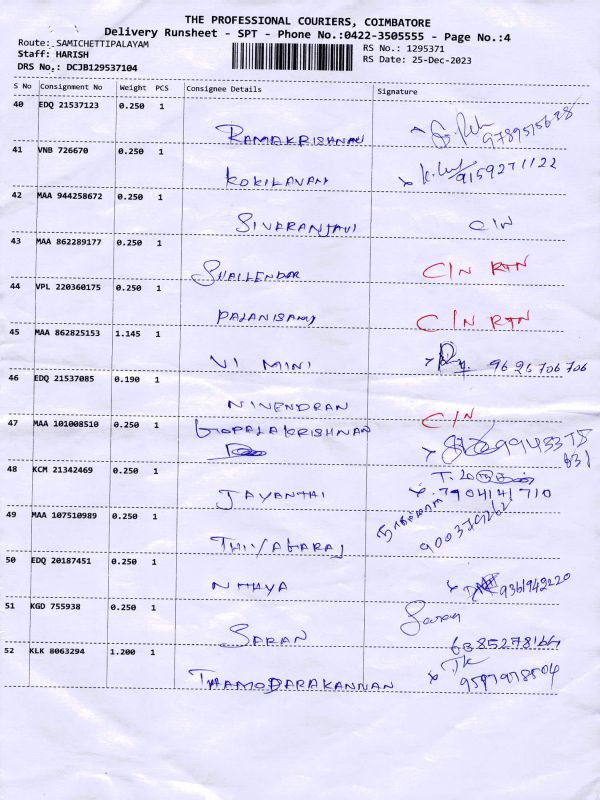 THE PROFESSIONAL COURIERS, COIMBATORE
Delivery Runsheet - SPT - Phone No.:0422-3505555 - Page No.:4
Route: SAMICHETTIPALAYAM
Staff: HARISH
DRS No.: DCJB129537104
RS No.: 1295371
RS Date: 25-Dec-2023
S No Consignment No Weight PCS Consignee Details Signature
40 EDQ 21537123 0.250 1
RAMAKRISHNAN 9789515628
41 VNB 726670 0.250 1
KOKILAVANI 9159271122
42 MAA 944258672 0.250 1
SIVARANJANI C/N
43 MAA 862289177 0.250 1
SHAILENDAR C/N RTN
44 VPL 220360175 0.250 1
PALANISAMY C/N RTN
45 MAA 862825153 1.145 1
VI MINI 9626706706
46 EDQ 21537085 0.190 1
NIVENDRAN C/N
47 MAA 101008510 0.250 1
GOPALAKRISHNAN 9943375
831
48 KCM 21342469 0.250 1
JAYANTHI 7904141710
49 MAA 107510989 0.250 1
THIYAGARAJ 900370262
50 EDQ 20187451 0.250 1
NITHYA 9361942220
51 KGD 755938 0.250 1
Saran
SARAN 6385278164
52 KLK 8063294 1.200 1
TK
THAMODARAKANNAN 9597978504